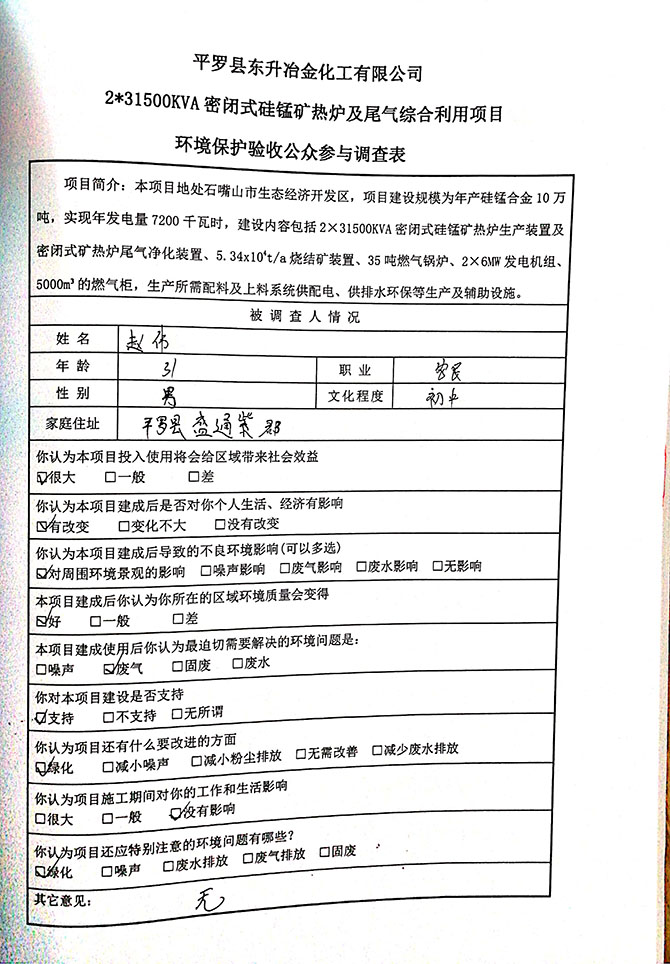 平罗县东升冶金化工有限公司
2*31500KVA 密闭式硅锰矿热炉及尾气综合利用项目
环境保护验收公众参与调查表
项目简介：本项目地处石嘴山市生态经济开发区，项目建设规模为年产硅锰合金 10 万
吨，实现年发电量 7200 千瓦时，建设内容包括 2×31500KVA 密闭式硅锰矿热炉生产装置及
密闭式矿热炉尾气净化装置、5.34x10⁴t/a 烧结矿装置、35 吨燃气锅炉、2×6MW 发电机组、
5000m³ 的燃气柜，生产所需配料及上料系统供配电、供排水环保等生产及辅助设施。
被调查人情况
姓名 赵伟
年龄 31 职业 农民
性别 男 文化程度 初中
家庭住址 平罗县盛通紫郡
你认为本项目投入使用将会给区域带来社会效益
☑很大 □一般 □差
你认为本项目建成后是否对你个人生活、经济有影响
☑有改变 □变化不大 □没有改变
你认为本项目建成后导致的不良环境影响(可以多选)
☑对周围环境景观的影响 □噪声影响 □废气影响 □废水影响 □无影响
本项目建成后你认为你所在的区域环境质量会变得
☑好 □一般 □差
本项目建成使用后你认为最迫切需要解决的环境问题是：
□噪声 ☑废气 □固废 □废水
你对本项目建设是否支持
☑支持 □不支持 □无所谓
你认为项目还有什么要改进的方面
☑绿化 □减小噪声 □减小粉尘排放 □无需改善 □减少废水排放
你认为项目施工期间对你的工作和生活影响
□很大 □一般 ☑没有影响
你认为项目还应特别注意的环境问题有哪些？
☑绿化 □噪声 □废水排放 □废气排放 □固废
其它意见： 无